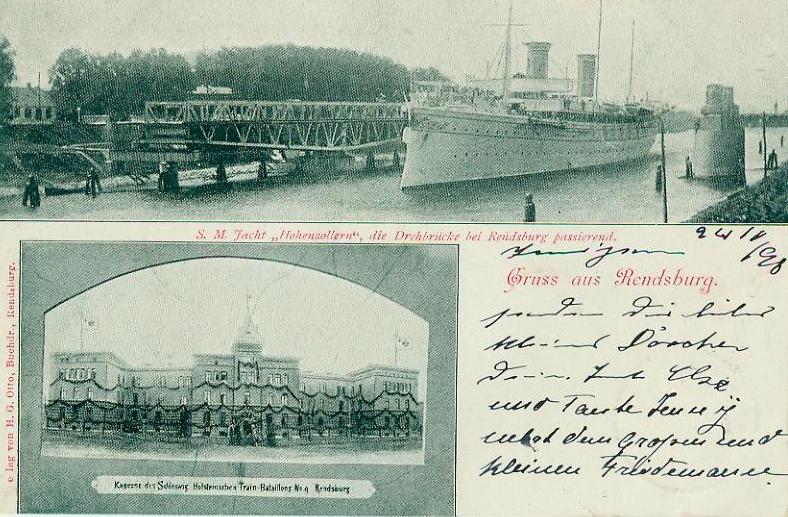 S. M. Jacht „Hohenzollern“, die Drehbrücke bei Rendsburg passierend.
24/1
/98
Gruss aus Rendsburg.
senden dir liebes
kleines Dörchen
deine Tante Else
und Tante Jenny
nebst dem großen und
kleinen Friedemann
Kaserne des Schleswig Holsteinschen Train-Bataillons No. 9 Rendsburg
lag von H. G. Otto, Buchdr., Rendsburg.